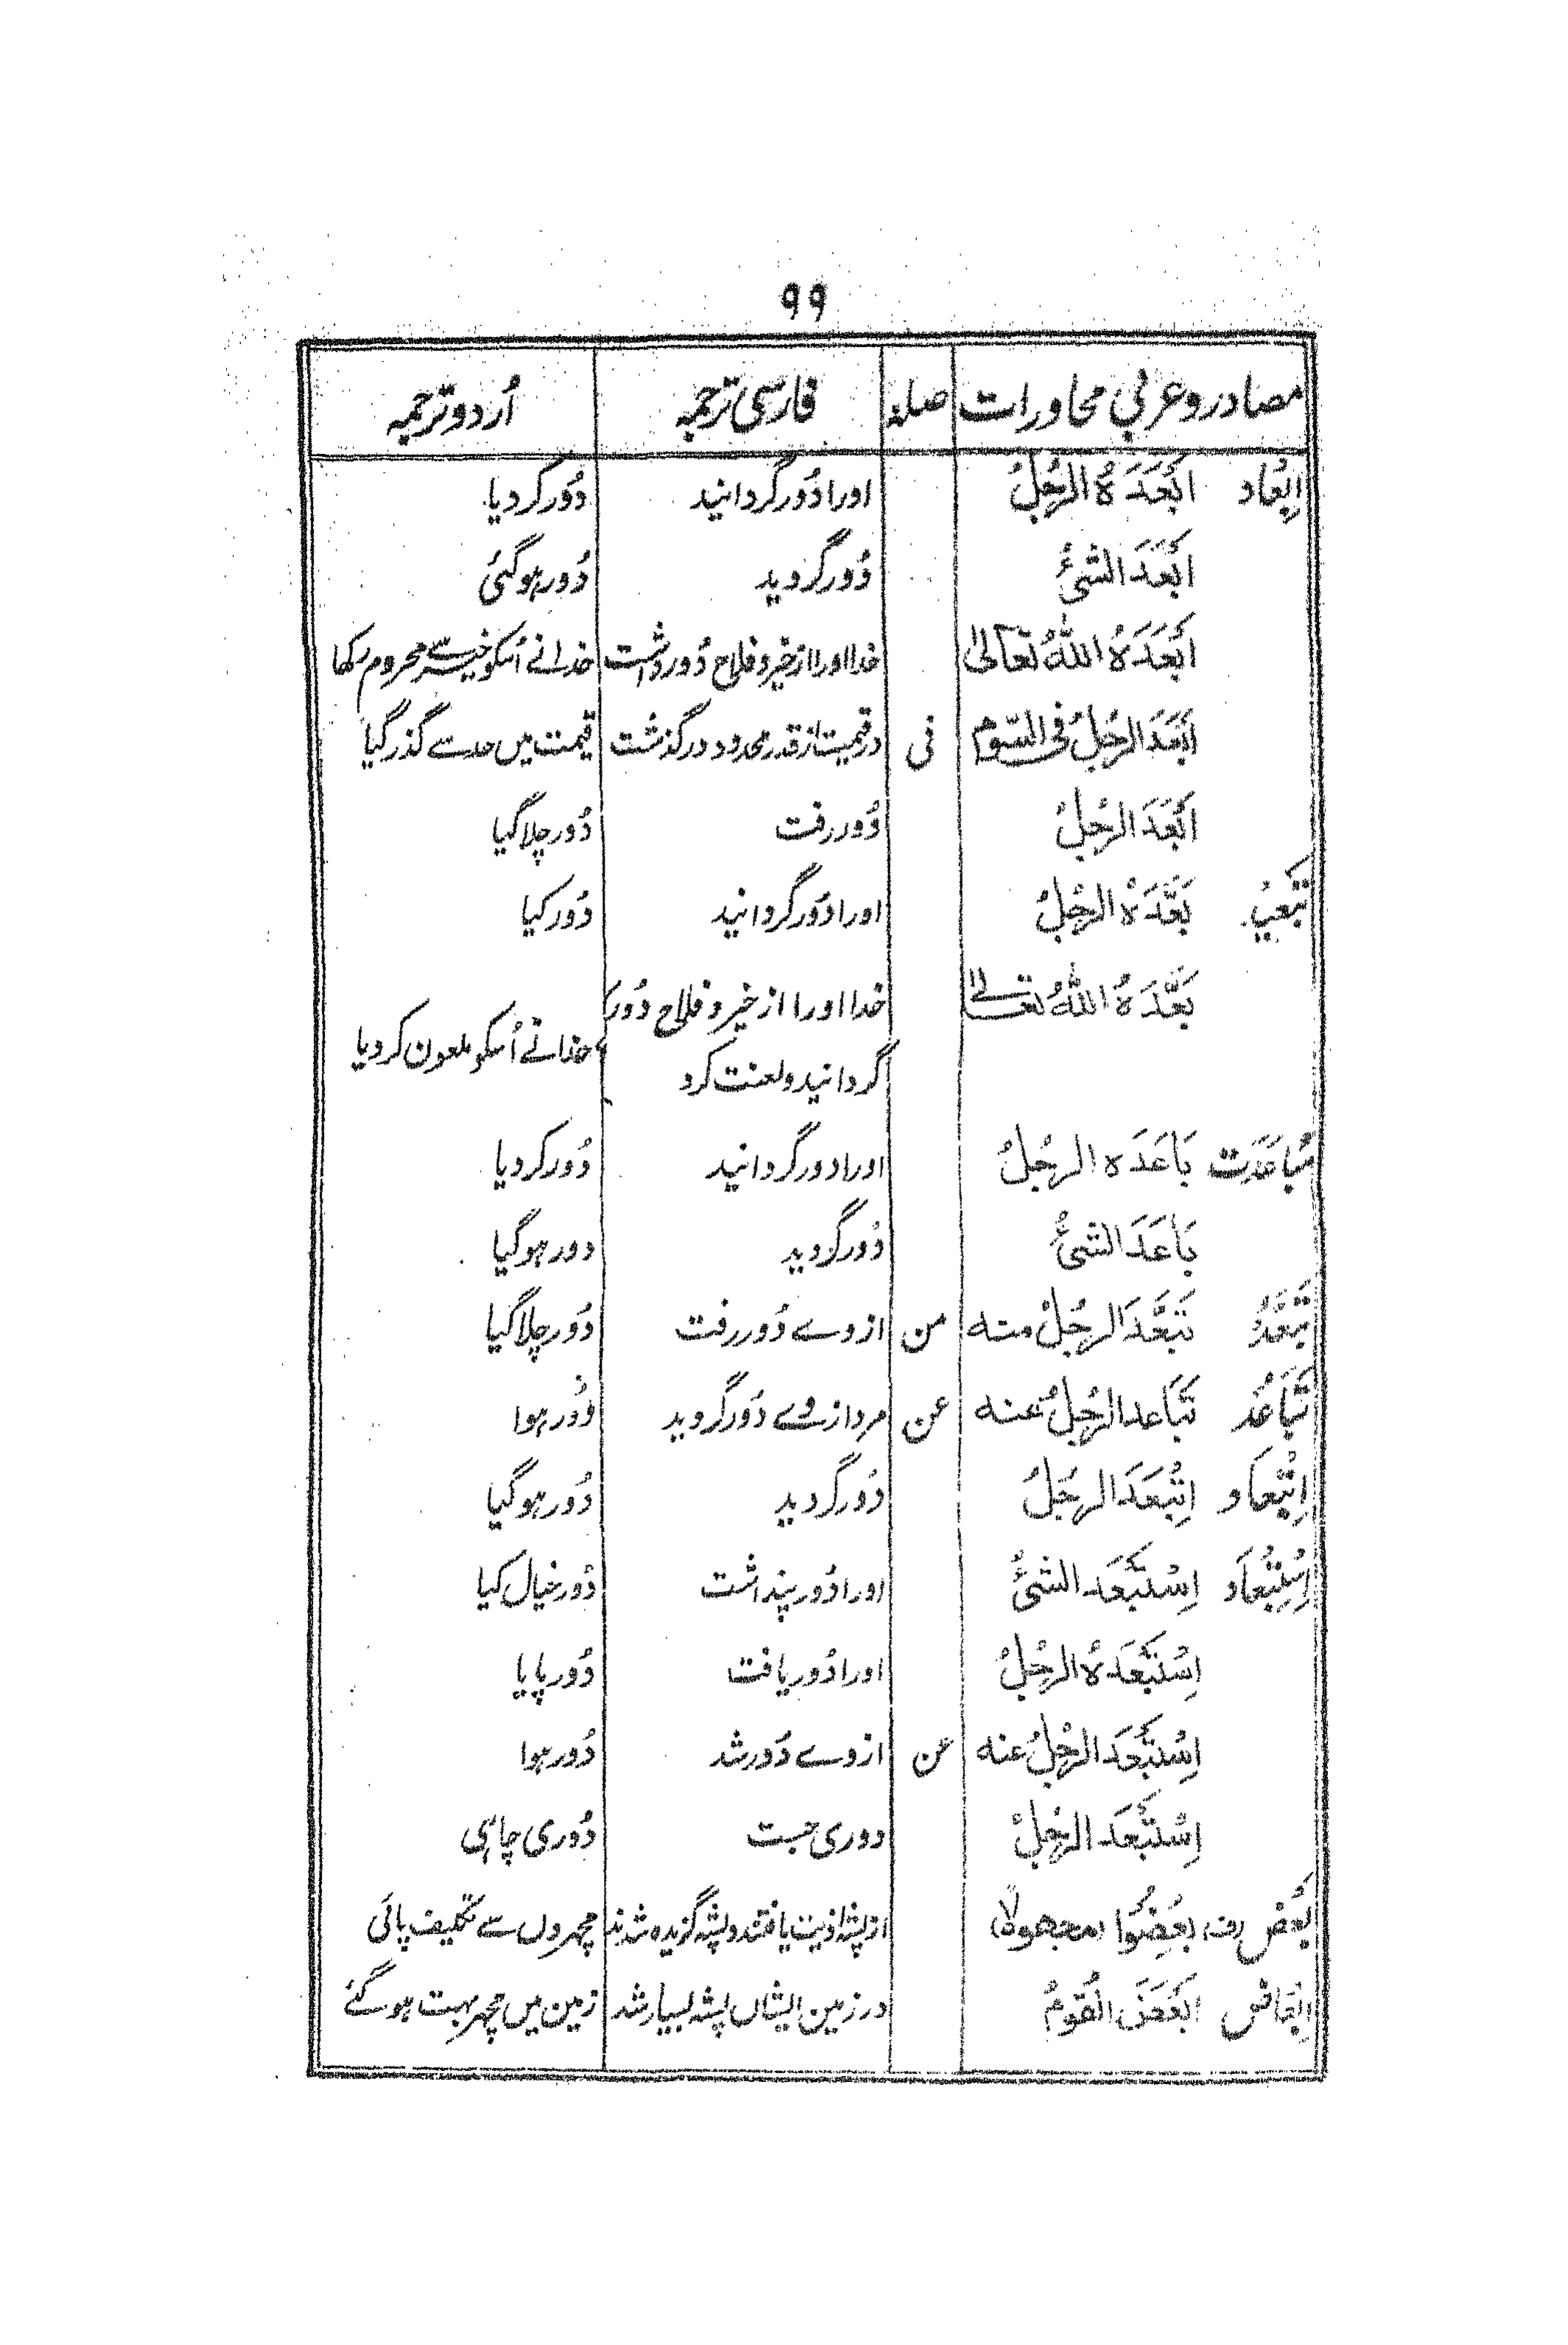 ۹۹
مصادر و عربی محاورات صلہ فارسی ترجمہ اُردو ترجمہ
اِبْعاد اَبْعَدَہُ الرَّجُلُ اورا دُور گردانید دُور کر دیا
اَبْعَدَ الشَّیْءُ دُور گردید دُور ہو گئی
اَبْعَدَہُ اللّٰہُ تعَالیٰ خدا اورا از خیر و فلاح دُور داشت خدا نے اُسکو خیر سے محروم رکھا
اَبْعَدَ الرَّجُلُ فی السَّوم فی در قیمت از قدر محدود در گذشت قیمت میں حد سے گذر گیا
اَبْعَدَ الرَّجُلُ دُور رفت دُور چلا گیا
تَبْعِیْد بَعَّدَہُ الرَّجُلُ اورا دُور گردانید دُور کیا
بَعَّدَہُ اللّٰہُ تعَالیٰ خدا اورا از خیر و فلاح دُور
گردانید و لعنت کرد خدا نے اُسکو ملعون کر دیا
مُبَاعَدَت بَاعَدَہ الرجُلُ اورا دور گردانید دُور کر دیا
بَاعَدَ الشیْءُ دُور گردید دور ہو گیا
تَبَعُّدُ تَبَعَّدَ الرجُلُ منه من از وے دُور رفت دُور چلا گیا
تَبَاعُد تَبَاعد الرَّجُلُ عنه عن مرد از وے دُور گردید دُور ہوا
اِبْتِعَاد اِبْتَعَدَ الرجُلُ دُور گردید دُور ہو گیا
اِسْتِبْعَاد اِسْتَبْعَدَ الشیْءُ اورا دُور پنداشت دُور خیال کیا
اِسْتَبْعَدَہُ الرَّجُلُ اورا دُور یافت دُور پایا
اِسْتَبْعَدَ الرَّجُلُ عنه عن از وے دُور شد دُور ہوا
اِسْتَبْعَدَ الرَّجُلُ دوری جست دُوری چاہی
بَعْض (ف) بُعِضُوا (مجهولا) از پشہ اذیت یافتند و پشہ گزیدہ شدند مچھروں سے تکلیف پائی
اِبْعَاض اَبْعَضَ الْقَومُ در زمین ایشاں پشہ بسیار شد زمین میں مچھر بہت ہو گئے